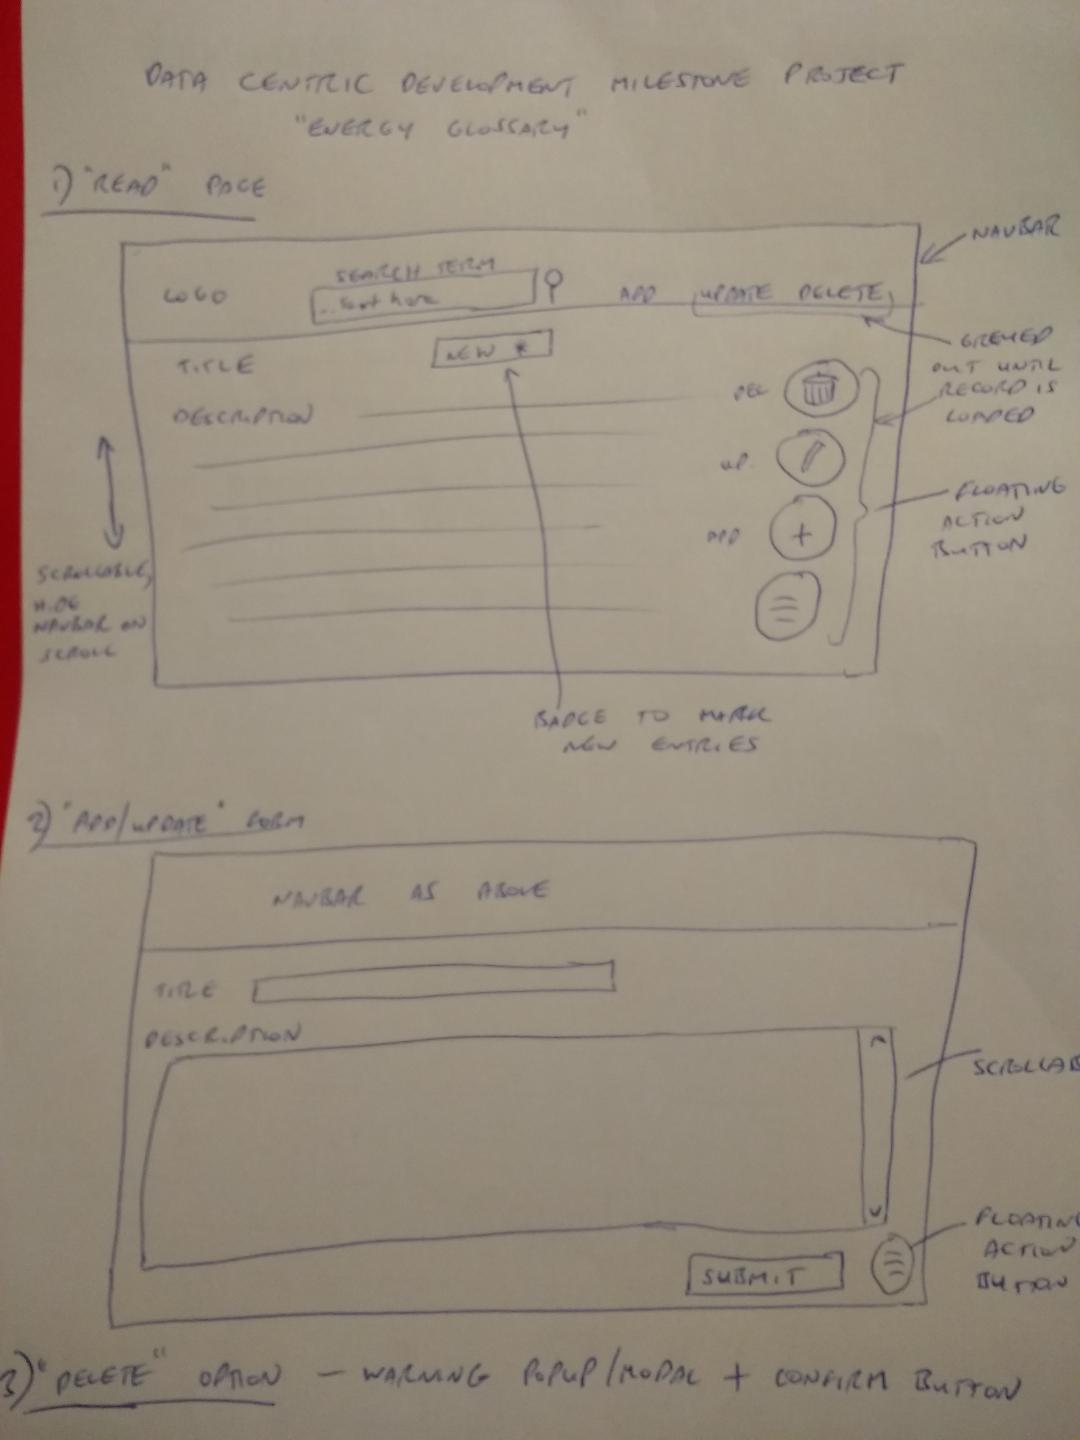 DATA CENTRIC DEVELOPMENT MILESTONE PROJECT
"ENERGY GLOSSARY"
1) "READ" PAGE
NAVBAR
SEARCH TERM
LOGO
...text here
ADD
UPDATE DELETE
TITLE
NEW *
GREYED
OUT UNTIL
RECORD IS
LOADED
DESCRIPTION
DEL
UP.
ADD
FLOATING
ACTION
BUTTON
SCROLLABLE,
HIDE
NAVBAR ON
SCROLL
BADGE TO MARK
NEW ENTRIES
2) "ADD/UPDATE" FORM
NAVBAR AS ABOVE
TITLE
DESCRIPTION
SCROLLAB
SUBMIT
FLOATING
ACTION
BUTTON
3) "DELETE" OPTION – WARNING POPUP/MODAL + CONFIRM BUTTON